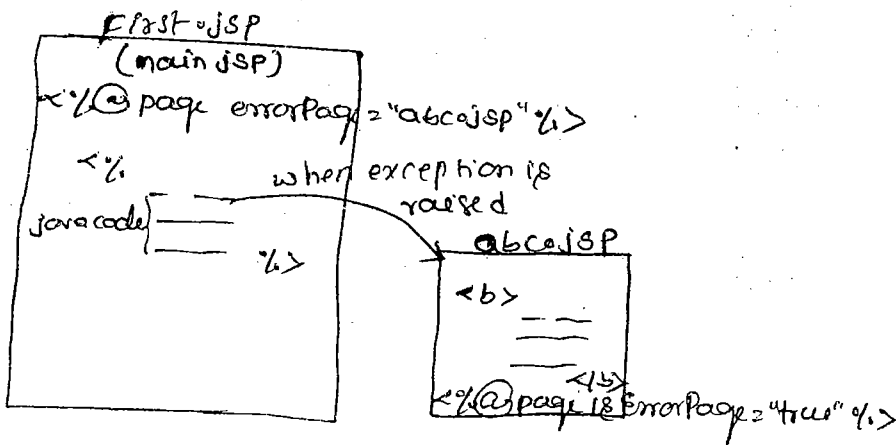 First.jsp
(main jsp)
<%@ page errorPage="abc.jsp" %>
<%
when exception is
raised
java code
%>
abc.jsp
<b>
</b>
<%@ page isErrorPage="true" %>